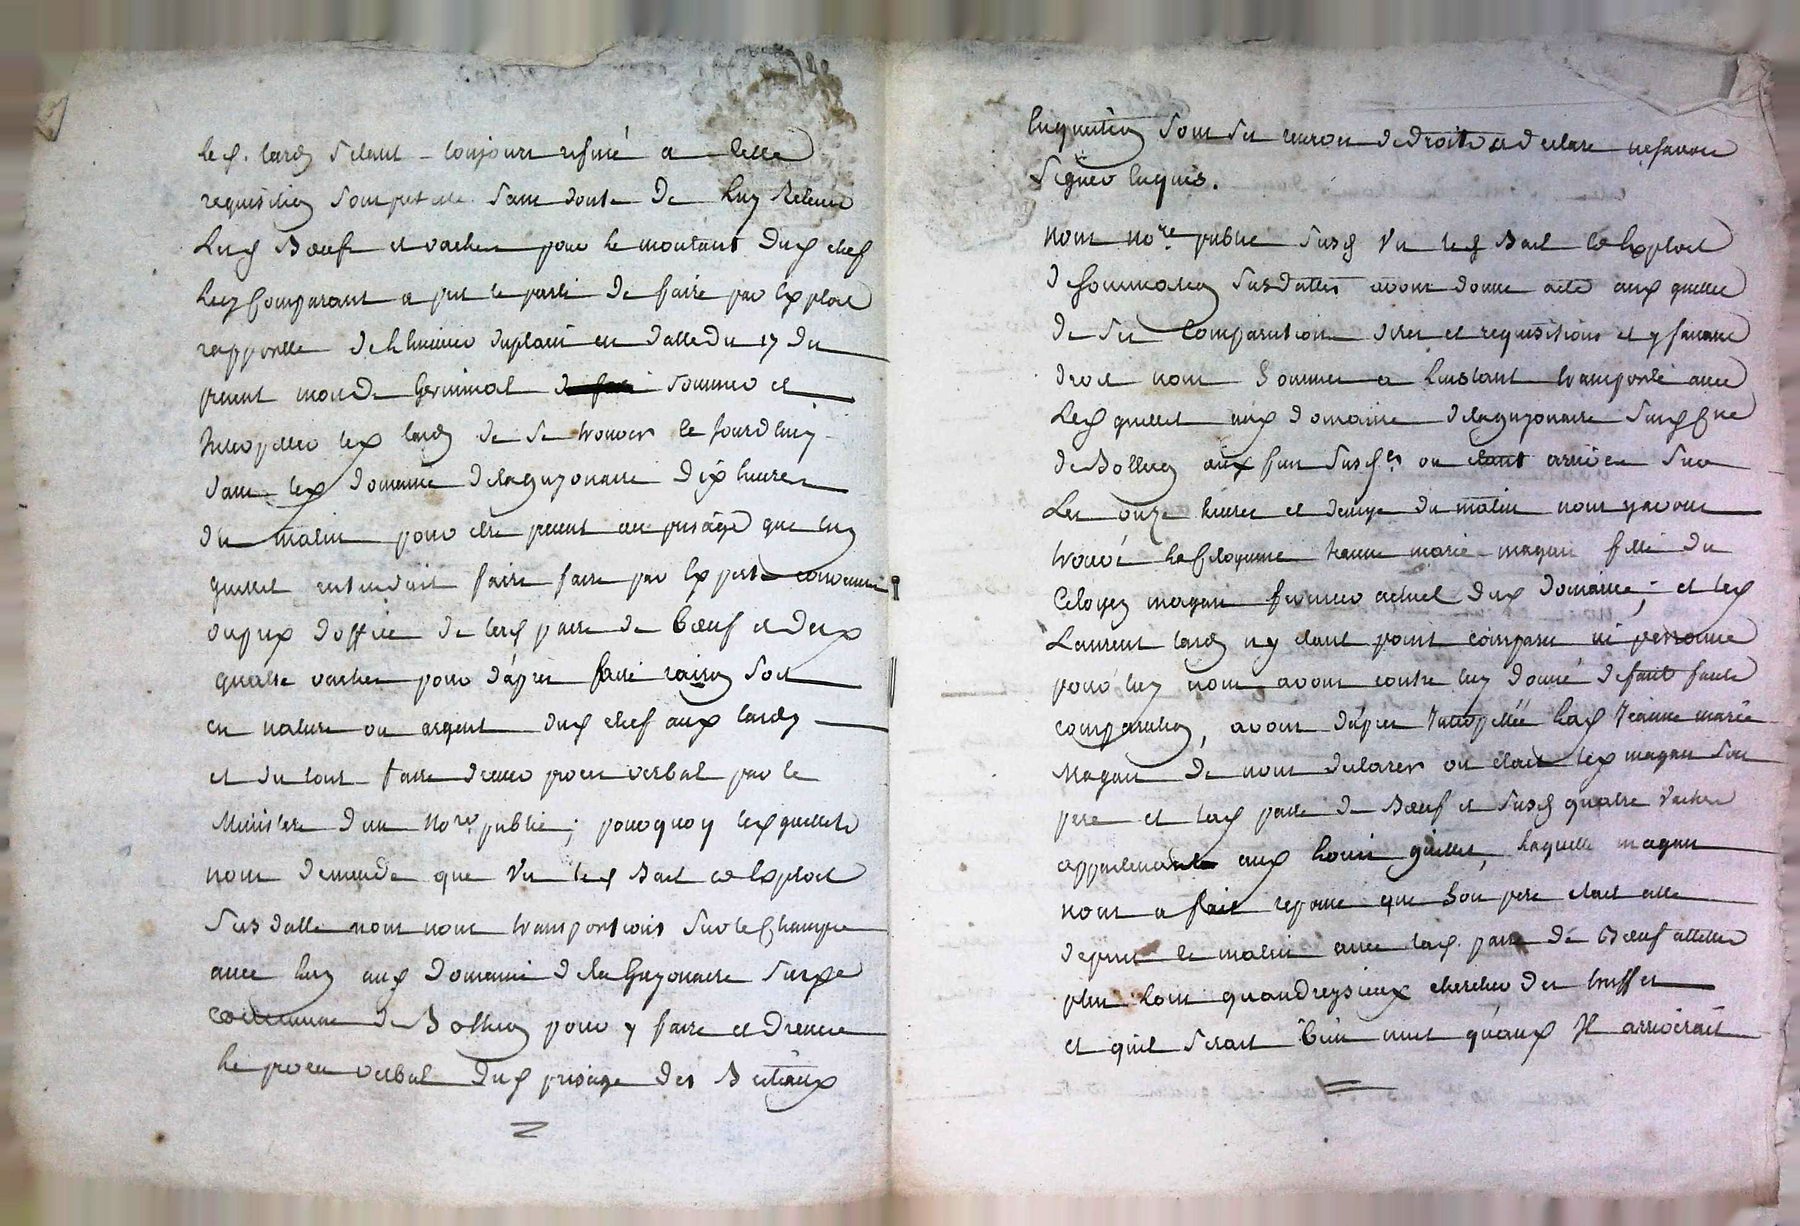 led. lardy s'étant toujours refusé a cette
requisition sous pretexte sans doute de luy retenir
lesd Bœufs et vaches pour le montant dud chef
led comparant a pris le party de faire par Exploit
rapporté de l'huissier duplain en datte du 17 du
present mois de Germinal sommer et
Interpeller led lardy de se trouver ce jourdhuy
dans led domaine delaguyonnare dix heures
du matin pour etre present au prisage que luy
guillet entendoit faire faire par Experts convenus
ou pris d'office de lad paire de bœuf et desd
quatre vaches pour d'après faire raison soit
en nature ou argent dud chef aux lardy
et du tout faire dresser procès verbal par le
Ministere d'un No.re public; pourquoy led guillet
nous demande que Vu led Bail et Exploit
susdatté nous nous transportions sur le champ
avec luy aud domaine dela Guyonnare susd
commune de pour y faire et dresser
le procès verbal dud prisage des Bestiaux
Enquestion sous ses reserves de droits et declare ne savoir
signer Enquis.
nous no.re public susd Vu led Bail et Exploit
de sommation susdattés avons donné acte aud guillet
de ses Comparution dires et requisitions et y faisant
droit nous sommes a l'instant transporté avec
led guillet aud domaine delaguyonnare susd C.ne
de aux fins susd.es ou étant arrivés sur
les onze heures et demye du matin nous y avons
trouvé la Citoyenne Jeanne marie magan fille du
Citoyen magan fermier actuel dud domaine; et led
Laurent lardy n'y étant point comparu ni personne
pour luy nous avons contre luy donné defaut faute
comparution, avons d'après Interpellée lad Jeanne marie
Magan de nous declarer ou étoit led magan son
pere et lad paire de Bœuf et susd quatre vaches
appartenante aud guillet, laquelle magan
nous a fait reponse que son pere étoit allé
depuis le matin avec lad. paire de Bœuf attellée
plus loin chercher des truffes
et qu'il seroit bien nuit quand Il arriveroit